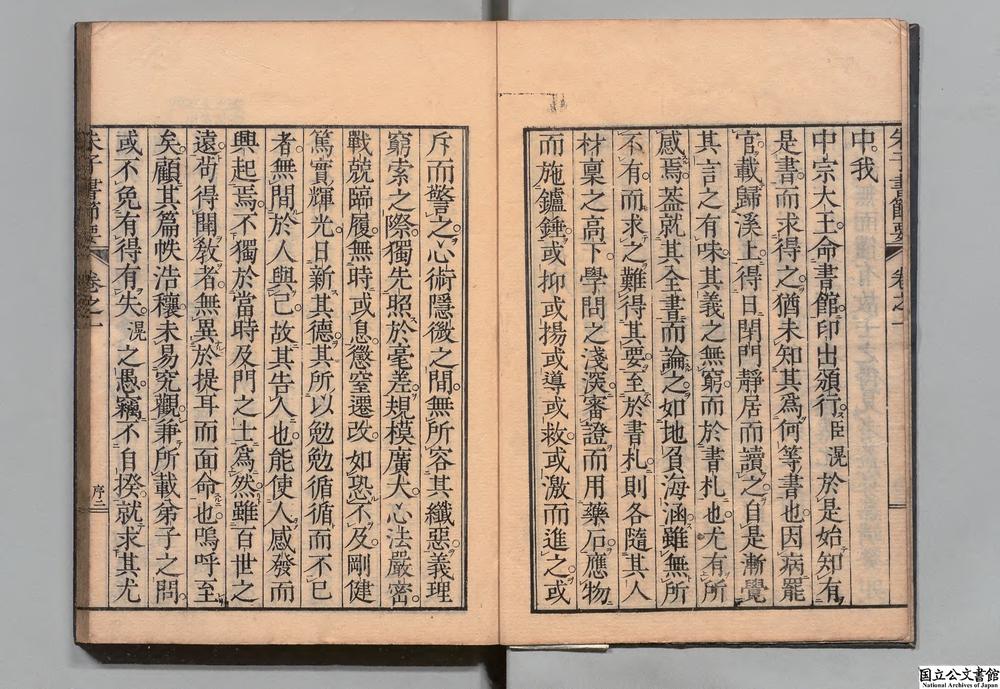 朱子書節要 卷之一
中我
中宗大王命書館印出頒行臣滉於是始知有
是書而求得之猶未知其爲何等書也因病罷
官載歸溪上得日閉門靜居而讀之自是漸覺
其言之有味其義之無窮而於書札也尤有所
感焉蓋就其全書而論之如地負海涵雖無所
不有而求之難得其要至於書札則各隨其人
材稟之高下學問之淺深審證而用藥石應物
而施鑪錘或抑或揚或導或救或激而進之或
斥而警之心術隱微之間無所容其纖惡義理
窮索之際獨先照於毫差規模廣大心法嚴密
戰兢臨履無時或息懲窒遷改如恐不及剛健
篤實輝光日新其德其所以勉勉循循而不已
者無間於人與己故其告人也能使人感發而
興起焉不獨於當時及門之士爲然雖百世之
遠苟得聞敎者無異於提耳而面命也嗚呼至
矣顧其篇帙浩穰未易究觀兼所載弟子之問
或不免有得有失滉之愚竊不自揆就求其尤
朱子書節要 卷之一 序二
国立公文書館
National Archives of Japan